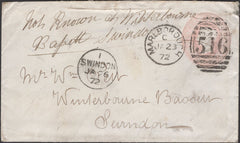 Not Known at Winterbourne
Bassett Swindon
MARLBOROUGH
C
JA 23
72
516
1
SWINDON
JA 26
72
Mr W
Winterbourne Bassett
Swindon